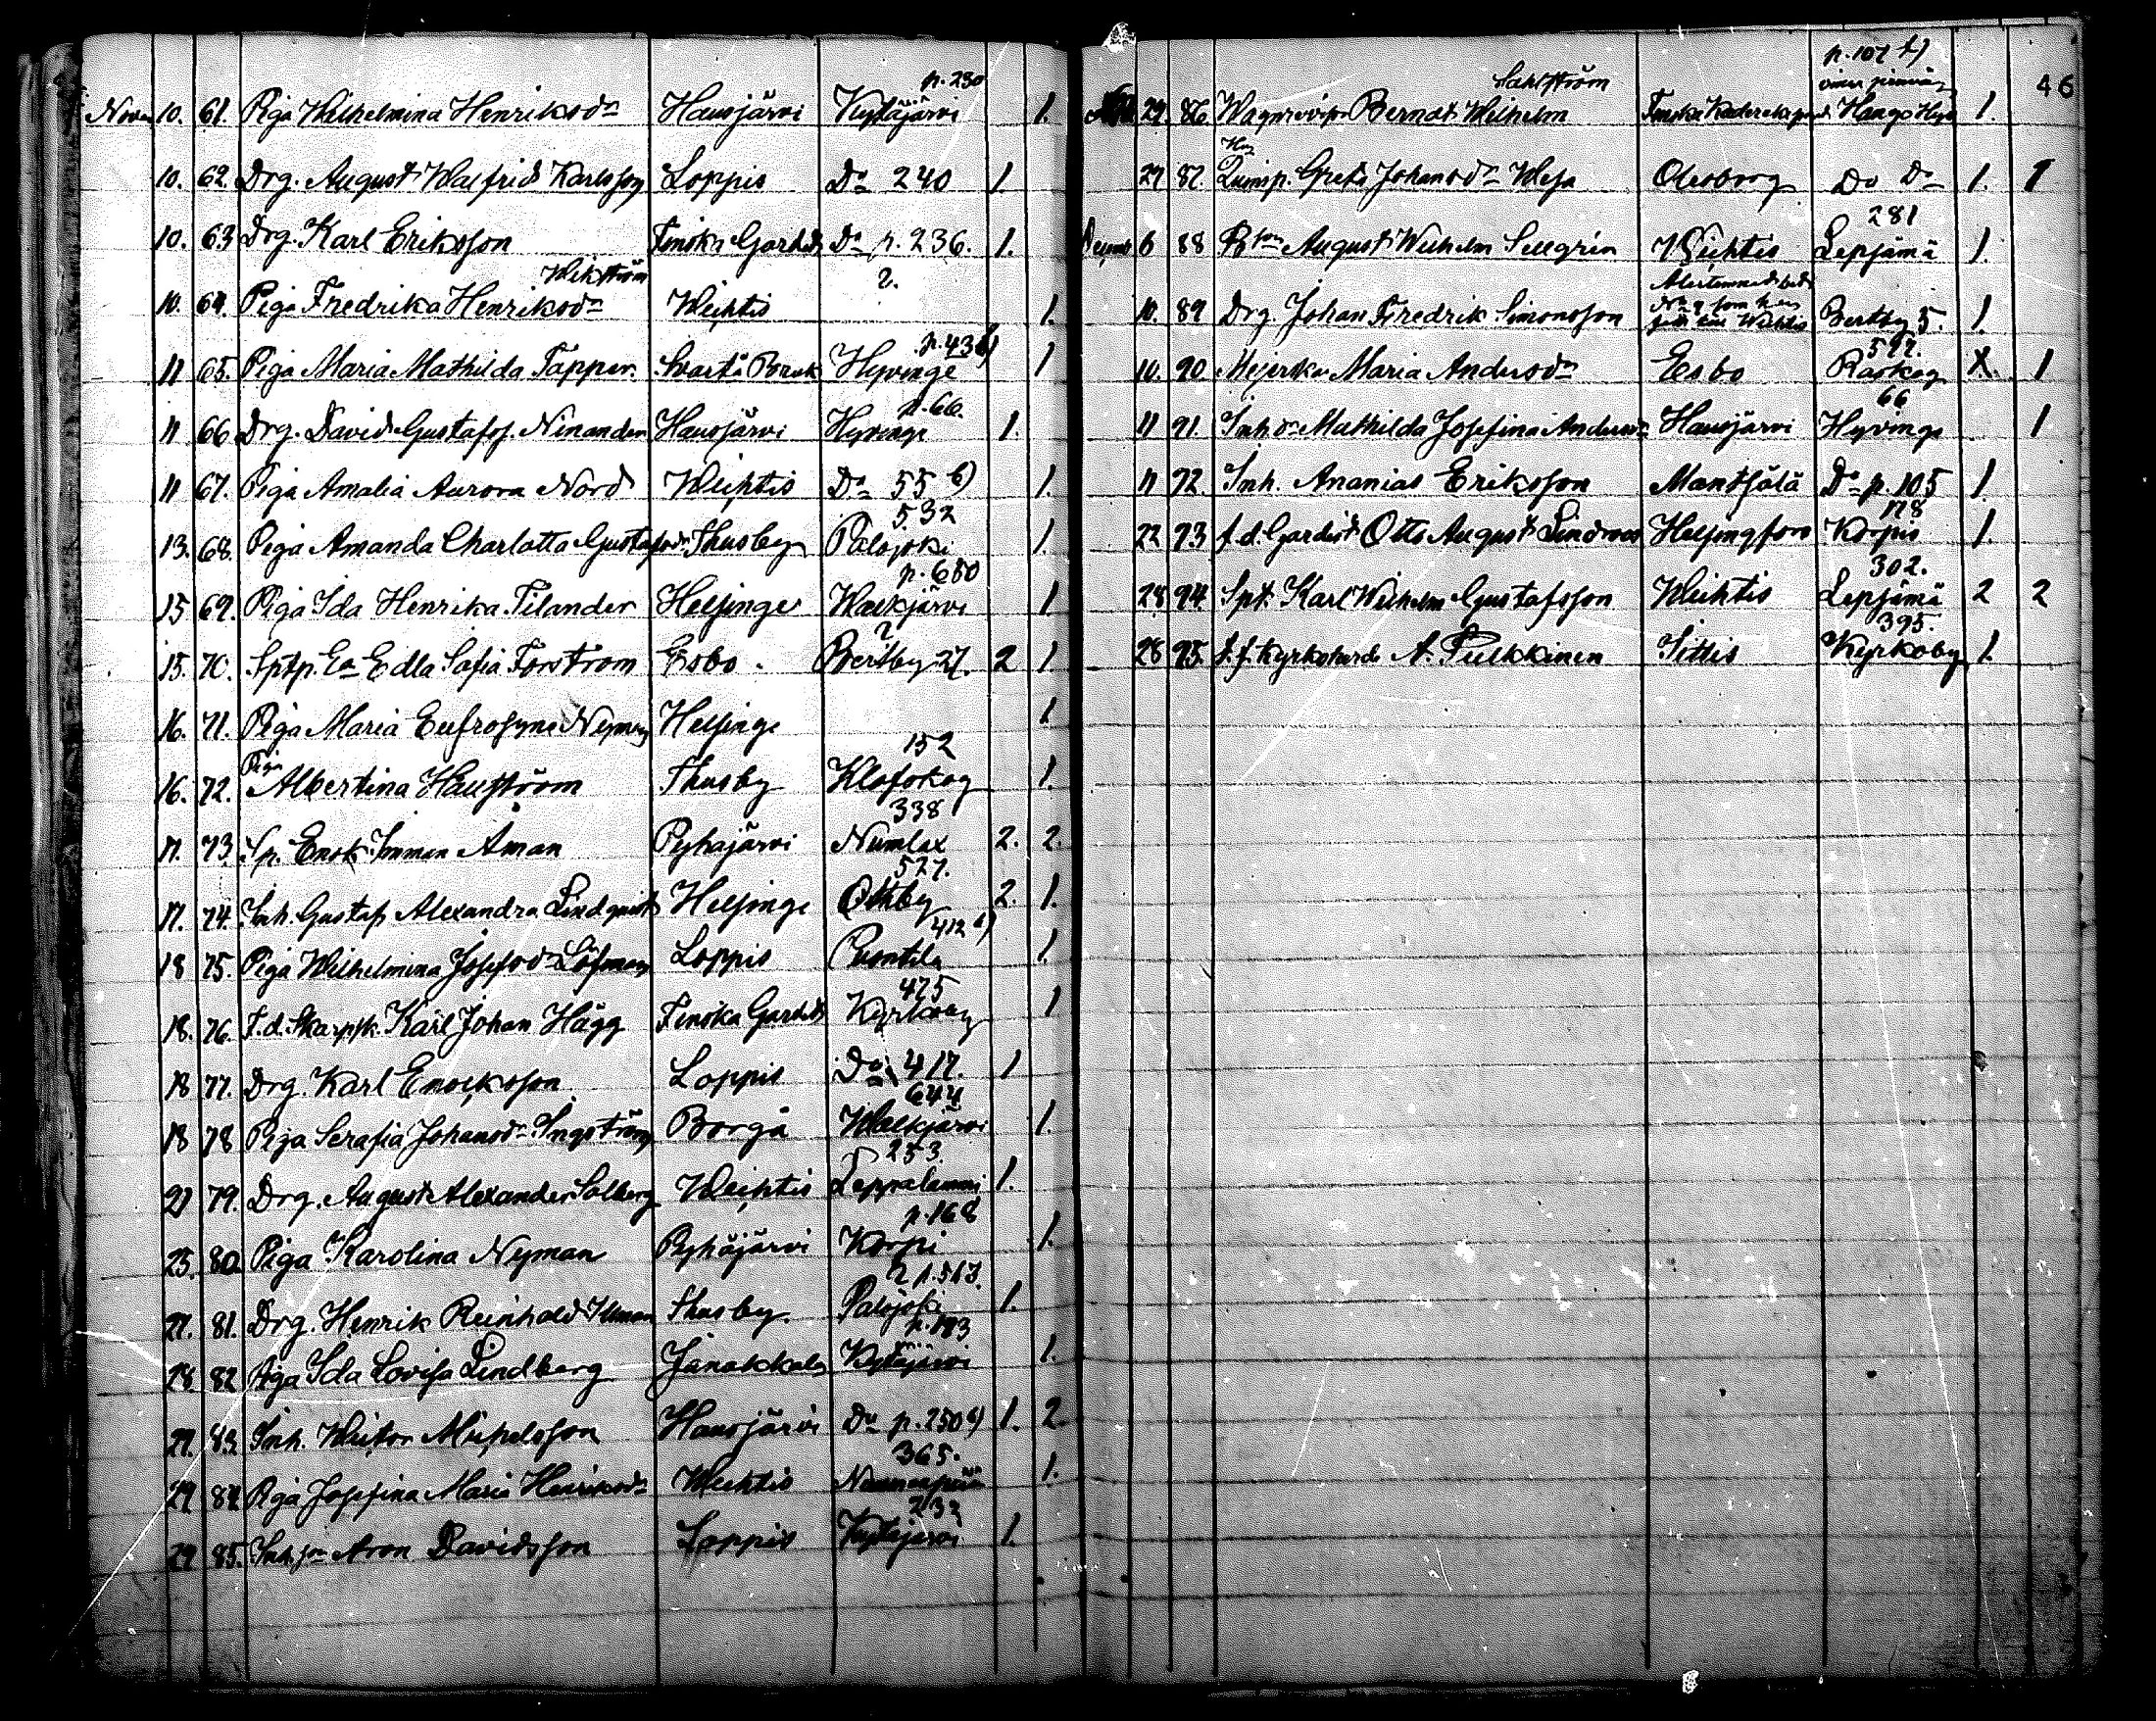 p. 230
Novem 10. 61. Piga Wilhelmina Henriksdr Hausjärvi Kytäjärvi 1.
10. 62. Drg. August Walfrid Karlsson Loppis Do 240 1.
10. 63 Drg. Karl Eriksson Finska Gardet Do p. 236. 1.
Wikström 2.
10. 64. Piga Fredrika Henriksdr Wichtis 1.
p. 436)
11 65. Piga Maria Mathilda Tapper. Svartå Bruk Hyvinge 1
p. 66.
11 66 Drg. David Gustafss. Ninander Hausjärvi Hyvinge 1.
11 67. Piga Amalia Aurora Nord Wichtis Do 55 b) 1.
532
13. 68. Piga Amanda Charlotta Gustafsdr Thusby Palojoki 1.
p. 680
15 69. Piga Ida Henrika Tilander Helsinge Walkjärvi 1
2
15. 70. Sptp. Ea Edla Sofia Forström Esbo. Bertby 27. 2 1.
16. 71. Piga Maria Eufrosyne Nyman Helsinge 1
Piga 152
16. 72. Albertina Hauström Thusby Klofskog 1.
338
17. 73 Sp. Enok Imman Åman Pyhäjärvi Numlax 2. 2.
527.
17. 74. Inh. Gustaf Alexandra Lindqvist Helsinge Othby 2. 1.
412 b)
18 75. Piga Wilhelmina Josefsdr Löfman Loppis Puontila 1
475
18. 76. F.d. Skarpsk. Karl Johan Hägg Finska Gardet Kyrkoby 1
18 77. Drg. Karl Enoksson Loppis Do 417. 1
644
18 78 Piga Serafia Johansdr Ingström Borgå Walkjärvi 1.
253.
21 79. Drg. August Alexander Salberg Wichtis Leppelammi 1.
p. 168
25. 80. Piga Karolina Nyman Pyhäjärvi Korpi 1.
2 p. 513.
27. 81. Drg. Henrik Reinhold Ullman Thusby. Palojoki 1.
p. 193
28 82 Piga Ida Lovisa Lindberg Janakkala Kytäjärvi 1.
29. 83. Inh. Wiktor Mickelsson Hausjärvi Do p. 250 b) 1. 2.
365.
29 84. Piga Josefina Maria Henriksdr Wichtis Nummenpää 1.
232
29 85. Inh. sn Aron Davidsson Loppis Kytäjärvi 1.
46
p. 107 b)
Sahlström
29. 86 Bernat Wilhelm Finska Hangö 1.
27 87. Greta Johansdr Uleåborg Do Do 1. 1
281
Decemb 6 88 August Wilhelm Sellgrén Wichtis Lepsämä 1.
10. 89 Drg. Johan Fredrik Simonsson Bertby 5. 1.
597.
10. 90. Mejerska Maria Andersdr Esbo Raskog X. 1
66
11 91. Inh. dr Mathilda Josefina Andersdr Hausjärvi Hyvinge 1
11 92. Inh. Ananias Eriksson Mäntsälä Do p. 105 1.
178
22 93 f.d. Gardist Otto August Lindroos Helsingfors Korpis 1.
302.
28 94. Spt. Karl Wilhelm Gustafsson Wichtis Lepsämä 2 2
395.
28 95. t.f. Kyrkoherde A. Pulkkinen Sittis Kyrkoby 1.